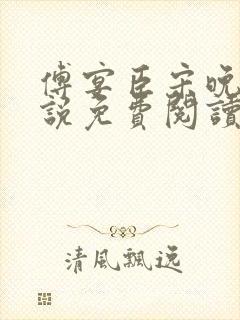 傅宴臣宋晚
說免費閱讀
清風飄逸